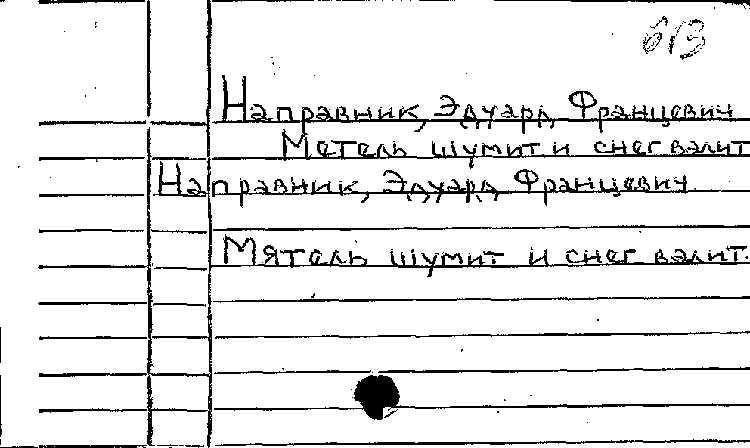 Направник, Эдуард Францевич
Метель шумит и снег валит
Направник, Эдуард Францевич.
Мятель шумит и снег валит.